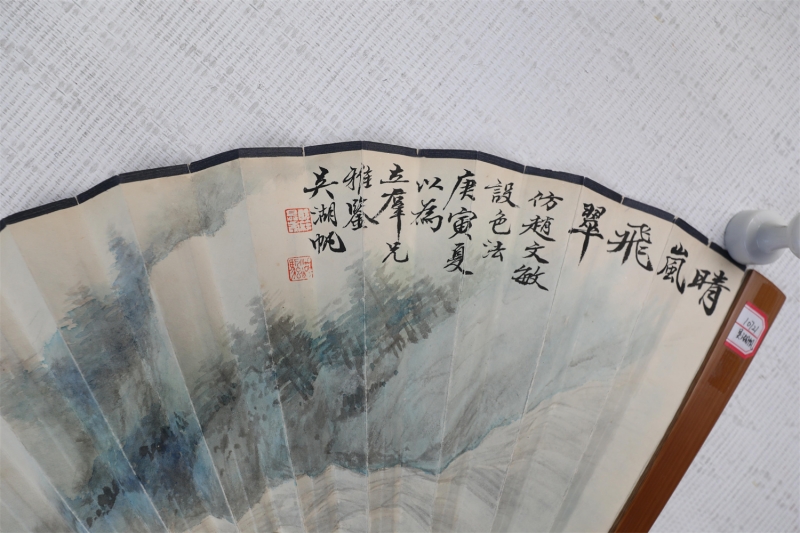 晴嵐飛
翠
仿趙文敏
設色法
庚寅夏
以為
立羣兄
雅鑒
吳湖帆